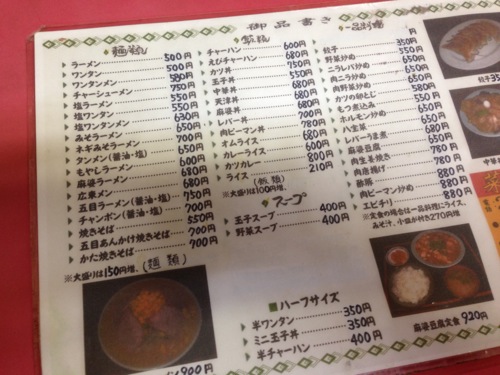 御品書き
麺類
ラーメン 500円
ワンタン 500円
ワンタンメン 580円
チャーシューメン 750円
塩ラーメン 550円
塩ワンタン 550円
塩ワンタンメン 630円
みそラーメン 650円
ネギみそラーメン 700円
タンメン(醤油・塩) 650円
もやしラーメン 600円
麻婆ラーメン 680円
広東メン 680円
五目ラーメン(醤油・塩) 750円
チャンポン(醤油・塩) 700円
焼きそば 550円
五目あんかけ焼きそば 700円
かた焼きそば 700円
※大盛りは150円増。(麺類)
飯類
チャーハン 600円
えびチャーハン 680円
カツ丼 750円
玉子丼 550円
中華丼 680円
天津丼 680円
麻婆丼 680円
レバー丼 700円
肉ピーマン丼 780円
オムライス 680円
カレーライス 600円
カツカレー 800円
ライス 210円
※大盛りは100円増。(飯類)
スープ
玉子スープ 400円
野菜スープ 400円
■ハーフサイズ
半ワンタン 350円
ミニ玉子丼 350円
半チャーハン 400円
一品料理
餃子 350円
野菜炒め
ニラレバ炒め
肉ニラ炒め
肉野菜炒め
カツの卵とじ
もつ煮込み
ホルモン炒め
八宝菜
レバーうま煮
麻婆豆腐
肉生姜焼き
肉唐揚げ
酢豚
肉ピーマン炒め
エビチリ
※定食の場合は一品料理にライス、
みそ汁、小皿が付き270円増
餃子35
中華
麻婆豆腐定食 920円
メン 900円